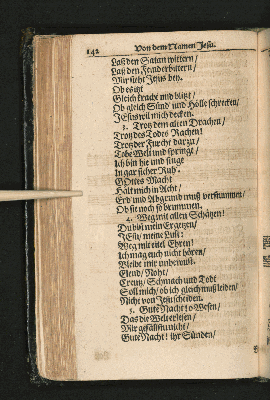 142 Von dem Namen Jesu.
Laß den Satan wittern/
Laß den Feind erbittern/
Mir steht Jesus bey.
Ob es itzt
Gleich kracht und blitzt/
Ob gleich Sünd' und Hölle schrecken/
JEsus wil mich decken.
3. Trotz dem alten Drachen/
Trotz des Todes Rachen!
Trotz der Furcht darzu/
Tobe Welt und springe/
Ich bin hie und singe
In gar sichrer Ruh'.
GOttes Macht
Hält mich in Acht/
Erd und Abgrund muß verstummen/
Ob sie noch so brummen.
4. Weg mit allen Schätzen!
Du bist mein Ergetzen/
JEsu/ meine Lust!
Weg mit eitel Ehren!
Ich mag euch nicht hören/
Bleibt mir unbewust.
Elend/ Noht/
Creutz/ Schmach und Todt
Soll mich/ ob ich gleich muß leiden/
Nicht von Jesu scheiden.
5. Gute Nacht/ o Wesen/
Das die Welt erlesen/
Mir gefällstu nicht/
Gute Nacht! ihr Sünden/